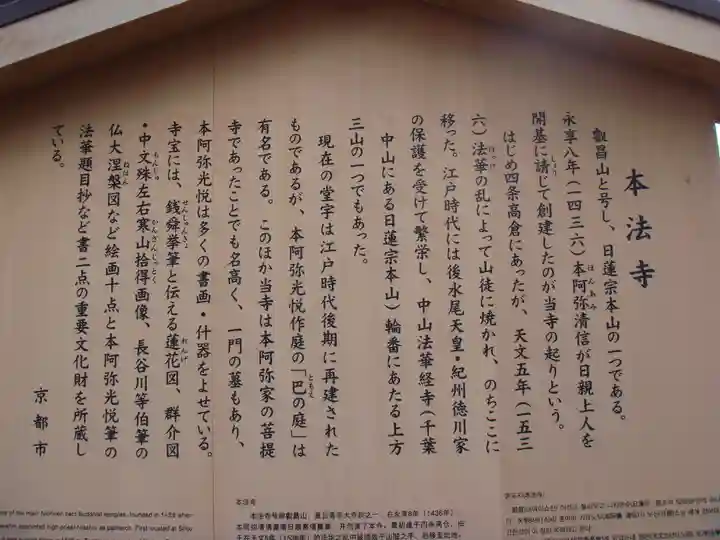 本法寺
叡昌山と号し、日蓮宗本山の一つである。
永享八年（一四三六）本阿弥清信が日親上人を
開基に請じて創建したのが当寺の起りという。
はじめ四条高倉にあったが、天文五年（一五三
六）法華の乱によって山徒に焼かれ、のちここに
移った。江戸時代には後水尾天皇・紀州徳川家
の保護を受けて繁栄し、中山法華経寺（千葉
中山にある日蓮宗本山）輪番にあたる上方
三山の一つでもあった。
現在の堂宇は江戸時代後期に再建された
ものであるが、本阿弥光悦作庭の「巴の庭」は
有名である。このほか当寺は本阿弥家の菩提
寺であったことでも名高く、一門の墓もあり、
本阿弥光悦は多くの書画・什器をよせている。
寺宝には、銭舜挙筆と伝える蓮花図、群介図
・中文殊左右寒山拾得画像、長谷川等伯筆の
仏大涅槃図など絵画十点と本阿弥光悦筆の
法華題目抄など書二点の重要文化財を所蔵し
ている。
京都市
本法寺